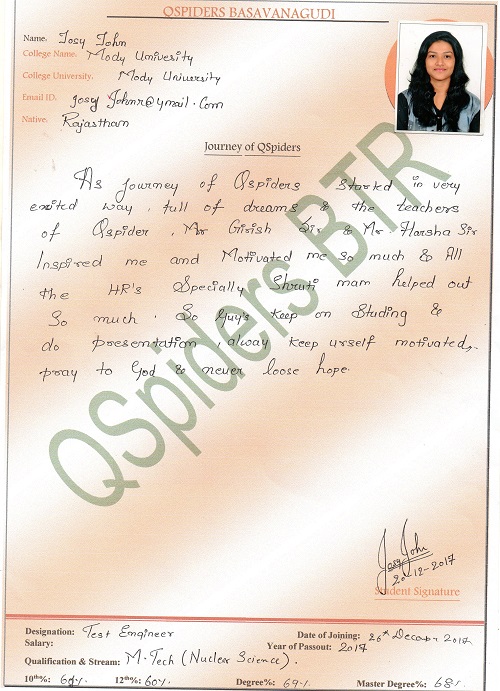 QSPIDERS BASAVANAGUDI
Name: Josy John
College Name: Mody University
College University: Mody University
Email ID: josyJohnr@ymail.com
Native: Rajasthan
Journey of QSpiders
As journey of Qspiders Started in very
exited way, full of dreams & the teachers
of QSpider, Mr Girish Sir & Mr. Harsha Sir
Inspired me and Motivated me so much & All
the HR's Specially Shruti mam helped out
So much. So Guy's keep on Studing &
do presentation, alway keep urself motivated,
pray to God & never loose hope.
QSpiders BTR
Josy John
20-12-2017
Student Signature
Designation: Test Engineer
Date of Joining: 26th 2017
Salary:
Year of Passout: 2017
Qualification & Stream: M.Tech (Nuclear Science).
10th%: 12th%: 60% Degree%: 69% Master Degree%: 68%